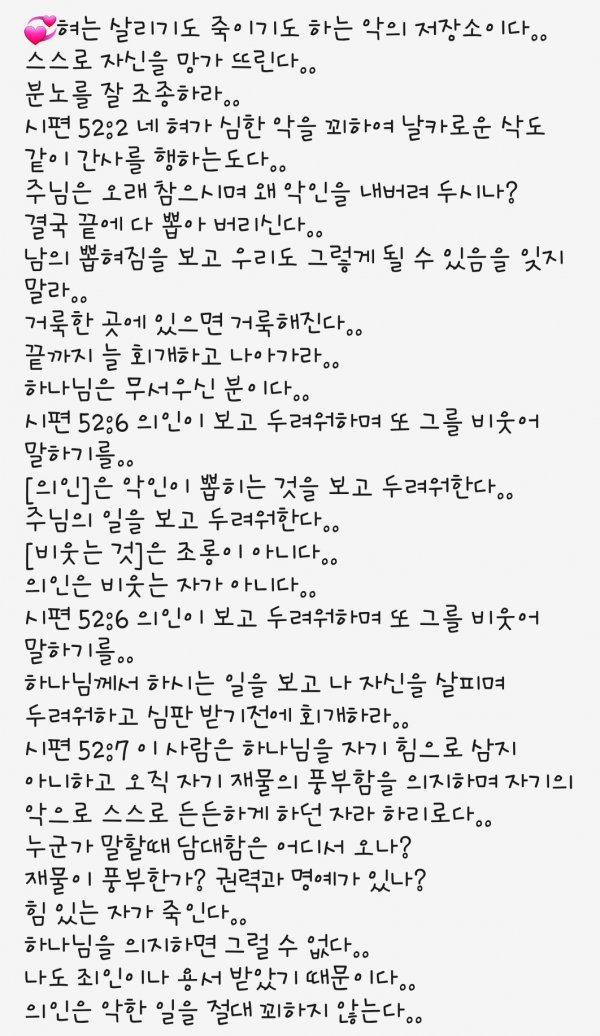 💞혀는 살리기도 죽이기도 하는 악의 저장소이다..
스스로 자신을 망가 뜨린다..
분노를 잘 조종하라..
시편 52:2 네 혀가 심한 악을 꾀하여 날카로운 삭도
같이 간사를 행하는도다..
주님은 오래 참으시며 왜 악인을 내버려 두시나?
결국 끝에 다 뽑아 버리신다..
남의 뽑혀짐을 보고 우리도 그렇게 될 수 있음을 잊지
말라..
거룩한 곳에 있으면 거룩해진다..
끝까지 늘 회개하고 나아가라..
하나님은 무서우신 분이다..
시편 52:6 의인이 보고 두려워하며 또 그를 비웃어
말하기를..
[의인]은 악인이 뽑히는 것을 보고 두려워한다..
주님의 일을 보고 두려워한다..
[비웃는 것]은 조롱이 아니다..
의인은 비웃는 자가 아니다..
시편 52:6 의인이 보고 두려워하며 또 그를 비웃어
말하기를..
하나님께서 하시는 일을 보고 나 자신을 살피며
두려워하고 심판 받기전에 회개하라..
시편 52:7 이 사람은 하나님을 자기 힘으로 삼지
아니하고 오직 자기 재물의 풍부함을 의지하며 자기의
악으로 스스로 든든하게 하던 자라 하리로다..
누군가 말할때 담대함은 어디서 오나?
재물이 풍부한가? 권력과 명예가 있나?
힘 있는 자가 죽인다..
하나님을 의지하면 그럴 수 없다..
나도 죄인이나 용서 받았기 때문이다..
의인은 악한 일을 절대 꾀하지 않는다..